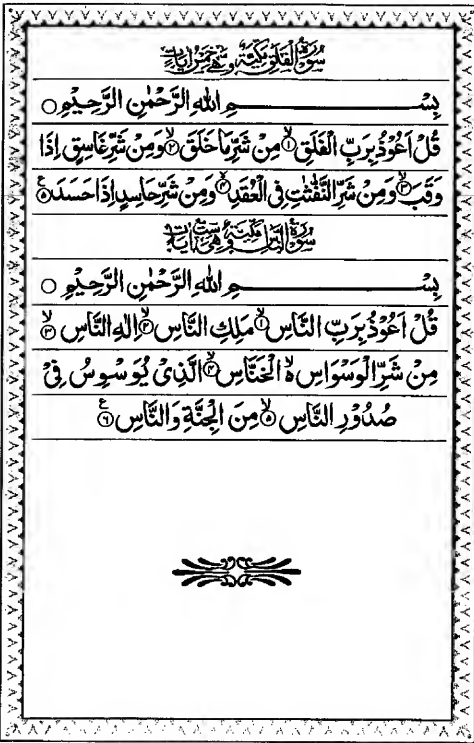 سُوْرَةُ الْفَلَقِ مَكِّيَّةٌ وَّهِيَ خَمْسُ اٰيَاتٍ
بِسْــــــــــمِ اللهِ الرَّحْمٰنِ الرَّحِيْمِ ○
قُلْ اَعُوْذُ بِرَبِّ الْفَلَقِ ۙ﴿۱﴾ مِنْ شَرِّ مَا خَلَقَ ۙ﴿۲﴾ وَمِنْ شَرِّ غَاسِقٍ اِذَا
وَقَبَ ۙ﴿۳﴾ وَمِنْ شَرِّ النَّفّٰثٰتِ فِى الْعُقَدِ ۙ﴿۴﴾ وَمِنْ شَرِّ حَاسِدٍ اِذَا حَسَدَ ﴿۵﴾ ع
سُوْرَةُ النَّاسِ مَكِّيَّةٌ وَّهِيَ سِتُّ اٰيَاتٍ
بِسْــــــــــمِ اللهِ الرَّحْمٰنِ الرَّحِيْمِ ○
قُلْ اَعُوْذُ بِرَبِّ النَّاسِ ۙ﴿۱﴾ مَلِكِ النَّاسِ ۙ﴿۲﴾ اِلٰهِ النَّاسِ ۙ﴿۳﴾
مِنْ شَرِّ الْوَسْوَاسِ ۙ۬ الْخَنَّاسِ ۙ﴿۴﴾ الَّذِىْ يُوَسْوِسُ فِىْ
صُدُوْرِ النَّاسِ ۙ﴿۵﴾ مِنَ الْجِنَّةِ وَالنَّاسِ ﴿۶﴾ ع